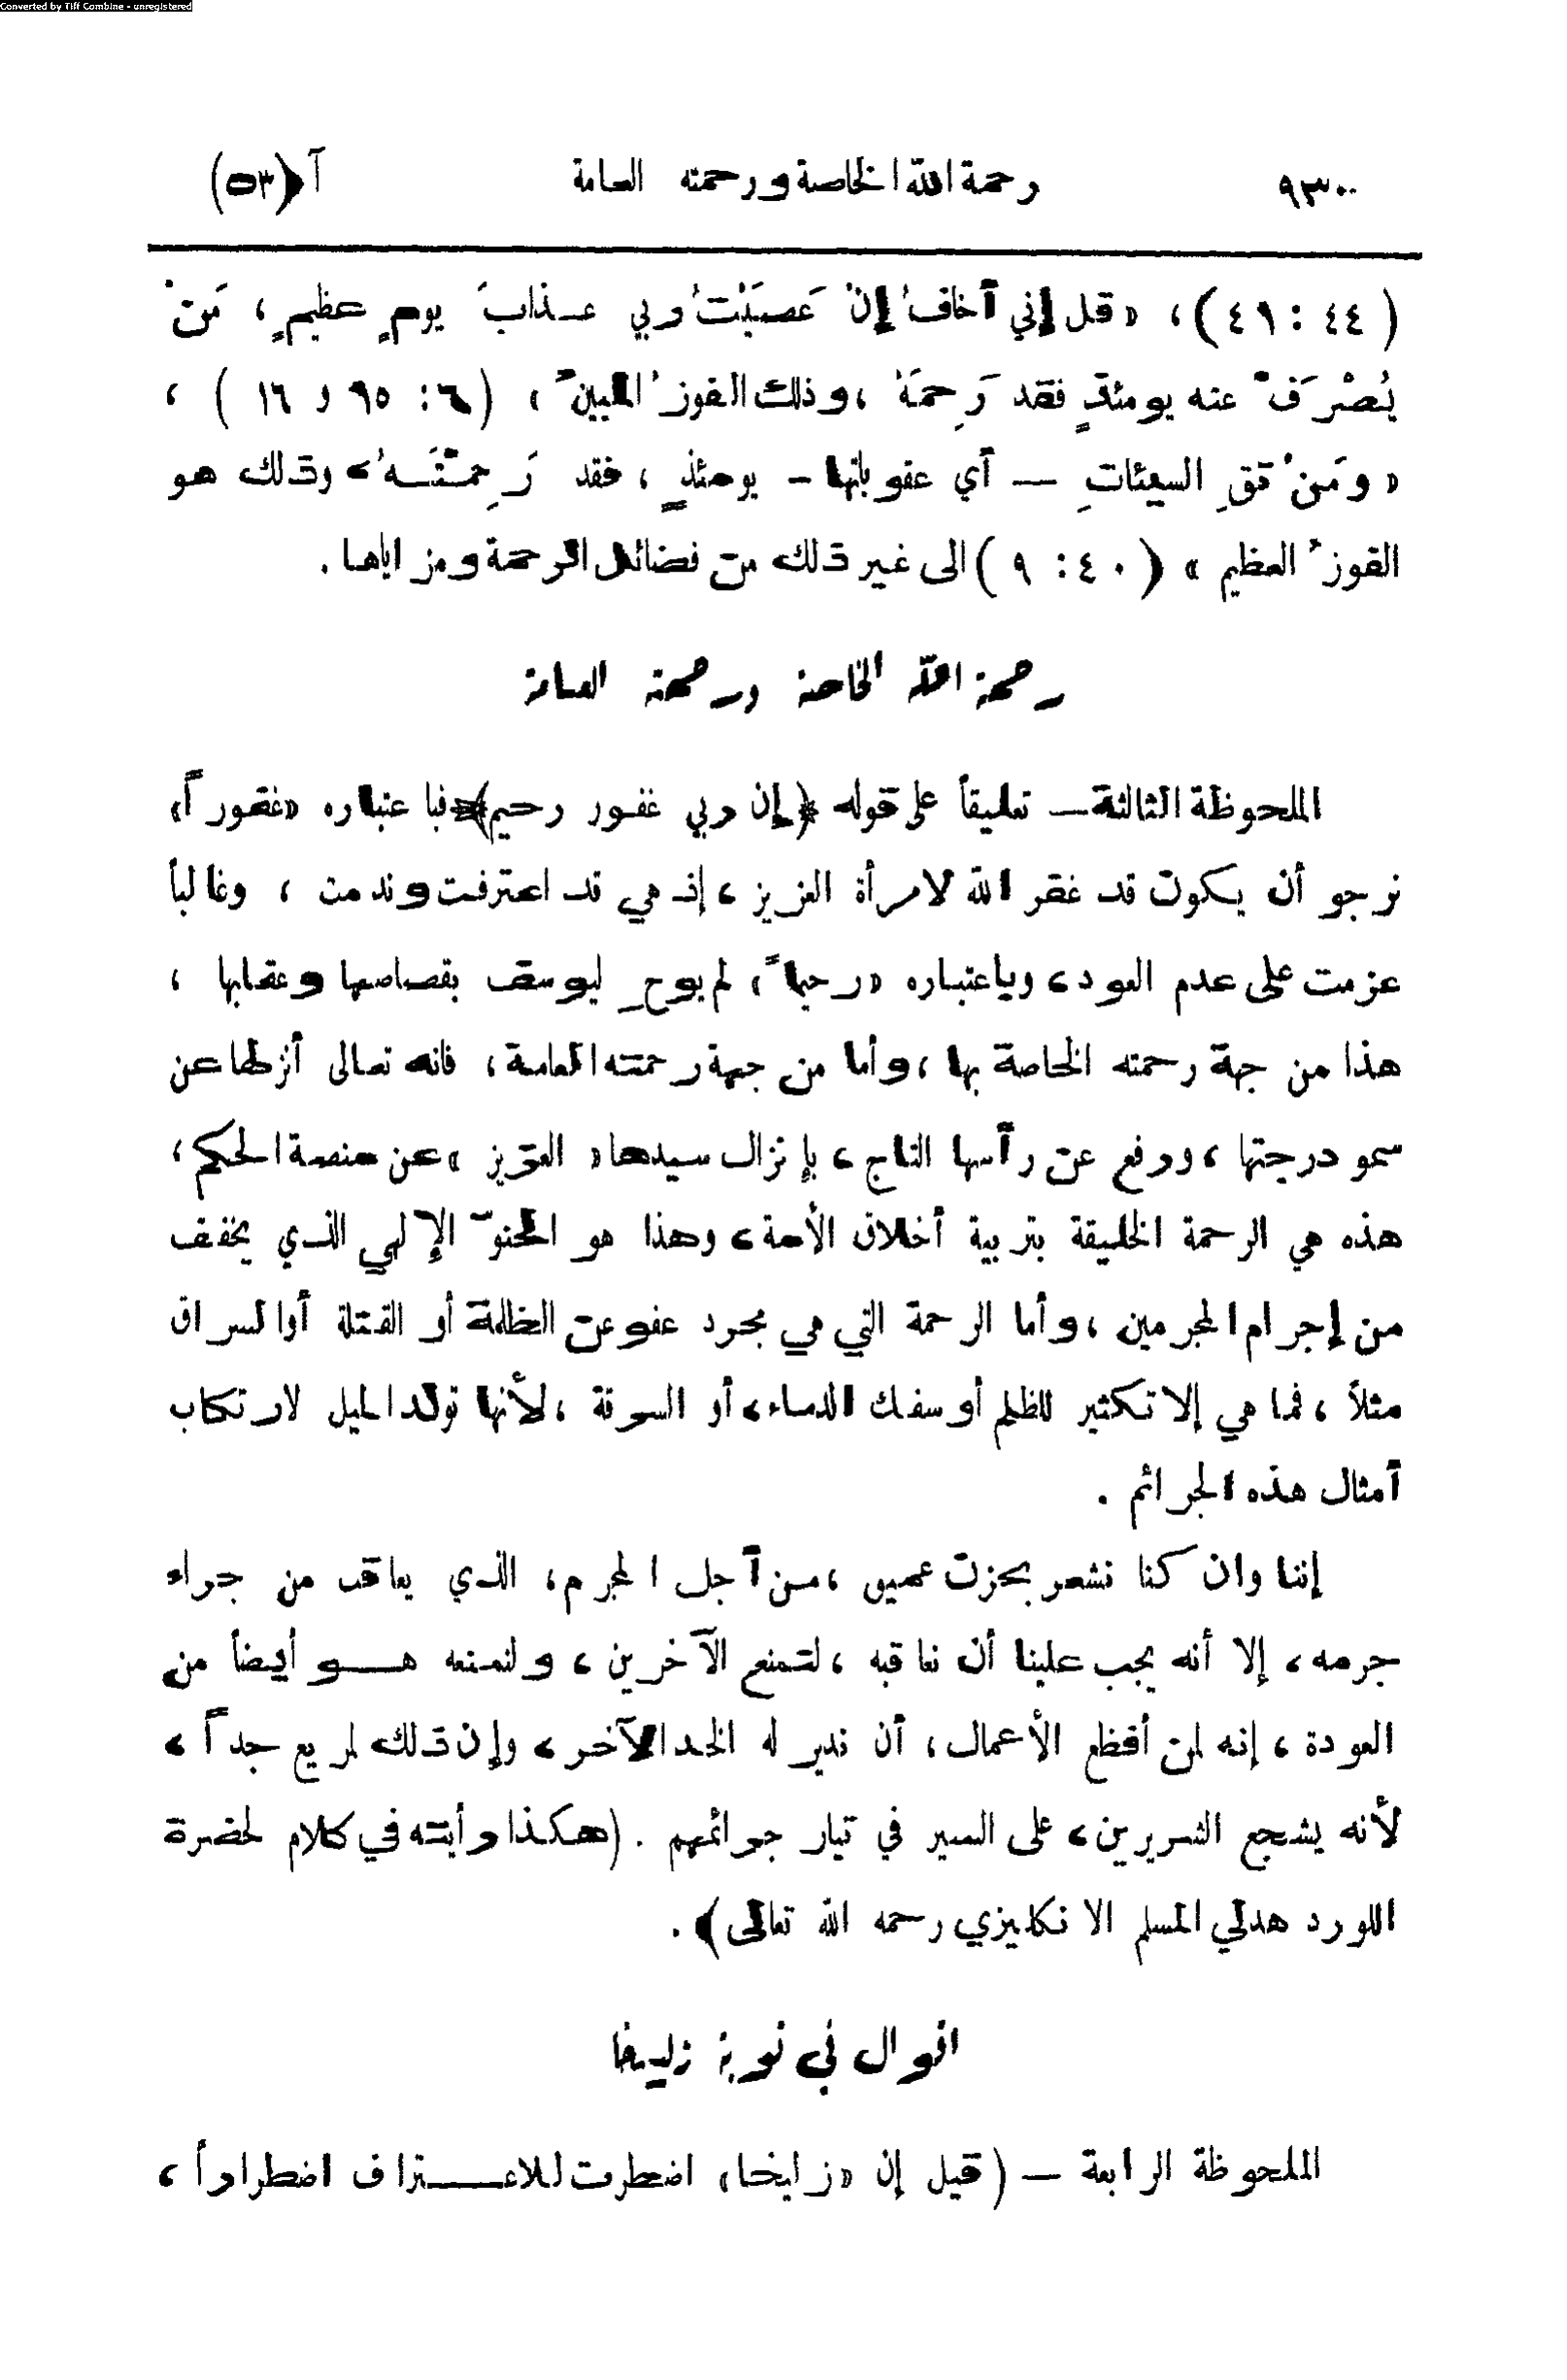 Converted by Tiff Combine - unregistered
٩٣٠٠ رحمة الله الخاصة ورحمته العامة آ (٥٣)
(٤٤ : ٤١)، «قل إني أخافُ إنْ عَصَيْتُ ربي عــذابَ يومٍ عظيمٍ، مَنْ
يُصْرَفْ عنه يومئذٍ فقد رَحِمَهُ، وذلك الفوزُ المبينُ» (٦ : ٩٥ و ١٦)،
«ومَنْ تقِ السيئاتِ — أي عقوباتها - يومئذٍ، فقد رَحِمْتَــهُ، وذلك هو
الفوزُ العظيم» (٤٠ : ٩) الى غير ذلك من فضائل الرحمة ومزاياها.
رحمة الله الخاصة ورحمته العامة
الملحوظة الثالثة — تعليقاً على قوله ﴿إن ربي غفور رحيم﴾ فباعتباره «غفوراً»
نرجو أن يكون قد غفر الله لامرأة العزيز، إذ هي قد اعترفت وندمت، وغالباً
عزمت على عدم العود، وباعتباره «رحيماً» لم يوحِ ليوسف بقصاصها وعقابها،
هذا من جهة رحمته الخاصة بها، وأما من جهة رحمته العامة، فانه تعالى أنزلها عن
سمو درجتها، ورفع عن رأسها التاج، بإنزال سيدها «العزيز» عن منصة الحكم،
هذه هي الرحمة الخليقة بتربية أخلاق الأمة، وهذا هو الحنوّ الإلهي الذي يخفف
من إجرام المجرمين، وأما الرحمة التي هي مجرد عفو عن الظلمة أو القتلة أو السراق
مثلاً، فما هي إلا تكثير للظلم أو سفك الدماء، أو السرقة، لأنها تولد الميل لارتكاب
أمثال هذه الجرائم.
إننا وان كنا نشعر بحزن عميق، من أجل المجرم، الذي يعاقب من جراء
جرمه، إلا أنه يجب علينا أن نعاقبه، لتمنع الآخرين، ولنمنعه هــو أيضاً من
العودة، إنه لمن أفظع الأعمال، أن ندير له الخد الآخر، وإن ذلك لمريع جداً،
لأنه يشجع الشريرين، على السير في تيار جرائمهم. (هكذا رأيته في كلام لحضرة
اللورد هدلي المسلم الانكليزي رحمه الله تعالى).
اقوال في توبة زليخا
الملحوظة الرابعة — (قيل إن «زليخا» اضطرت للاعــتراف اضطراراً،